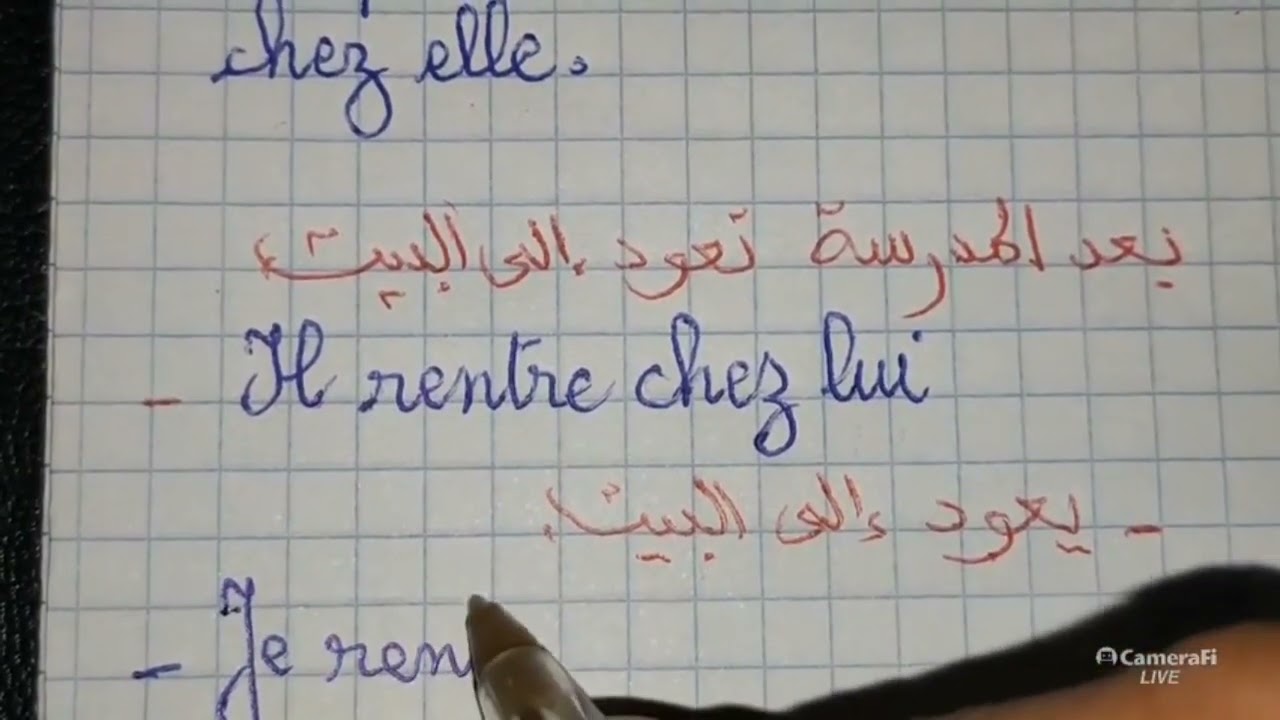 chez elle.
بعد المدرسة تعود إلى البيت،
- Il rentre chez lui
- يعود إلى البيت.
- Je ren
CameraFi
LIVE